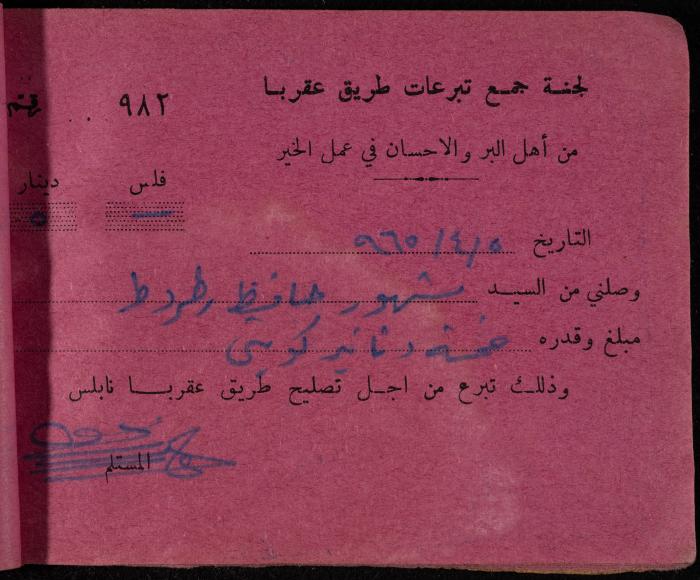 لجنة جمع تبرعات طريق عقربا
٩٨٢
من أهل البر والاحسان في عمل الخير
فلس دينار
— ٥
التاريخ ٥/٤/٩٦٥
وصلني من السيد مشهور حافظ
مبلغ وقدره خمسة دنانير كويتي
وذلك تبرع من اجل تصليح طريق عقربا نابلس
المستلم